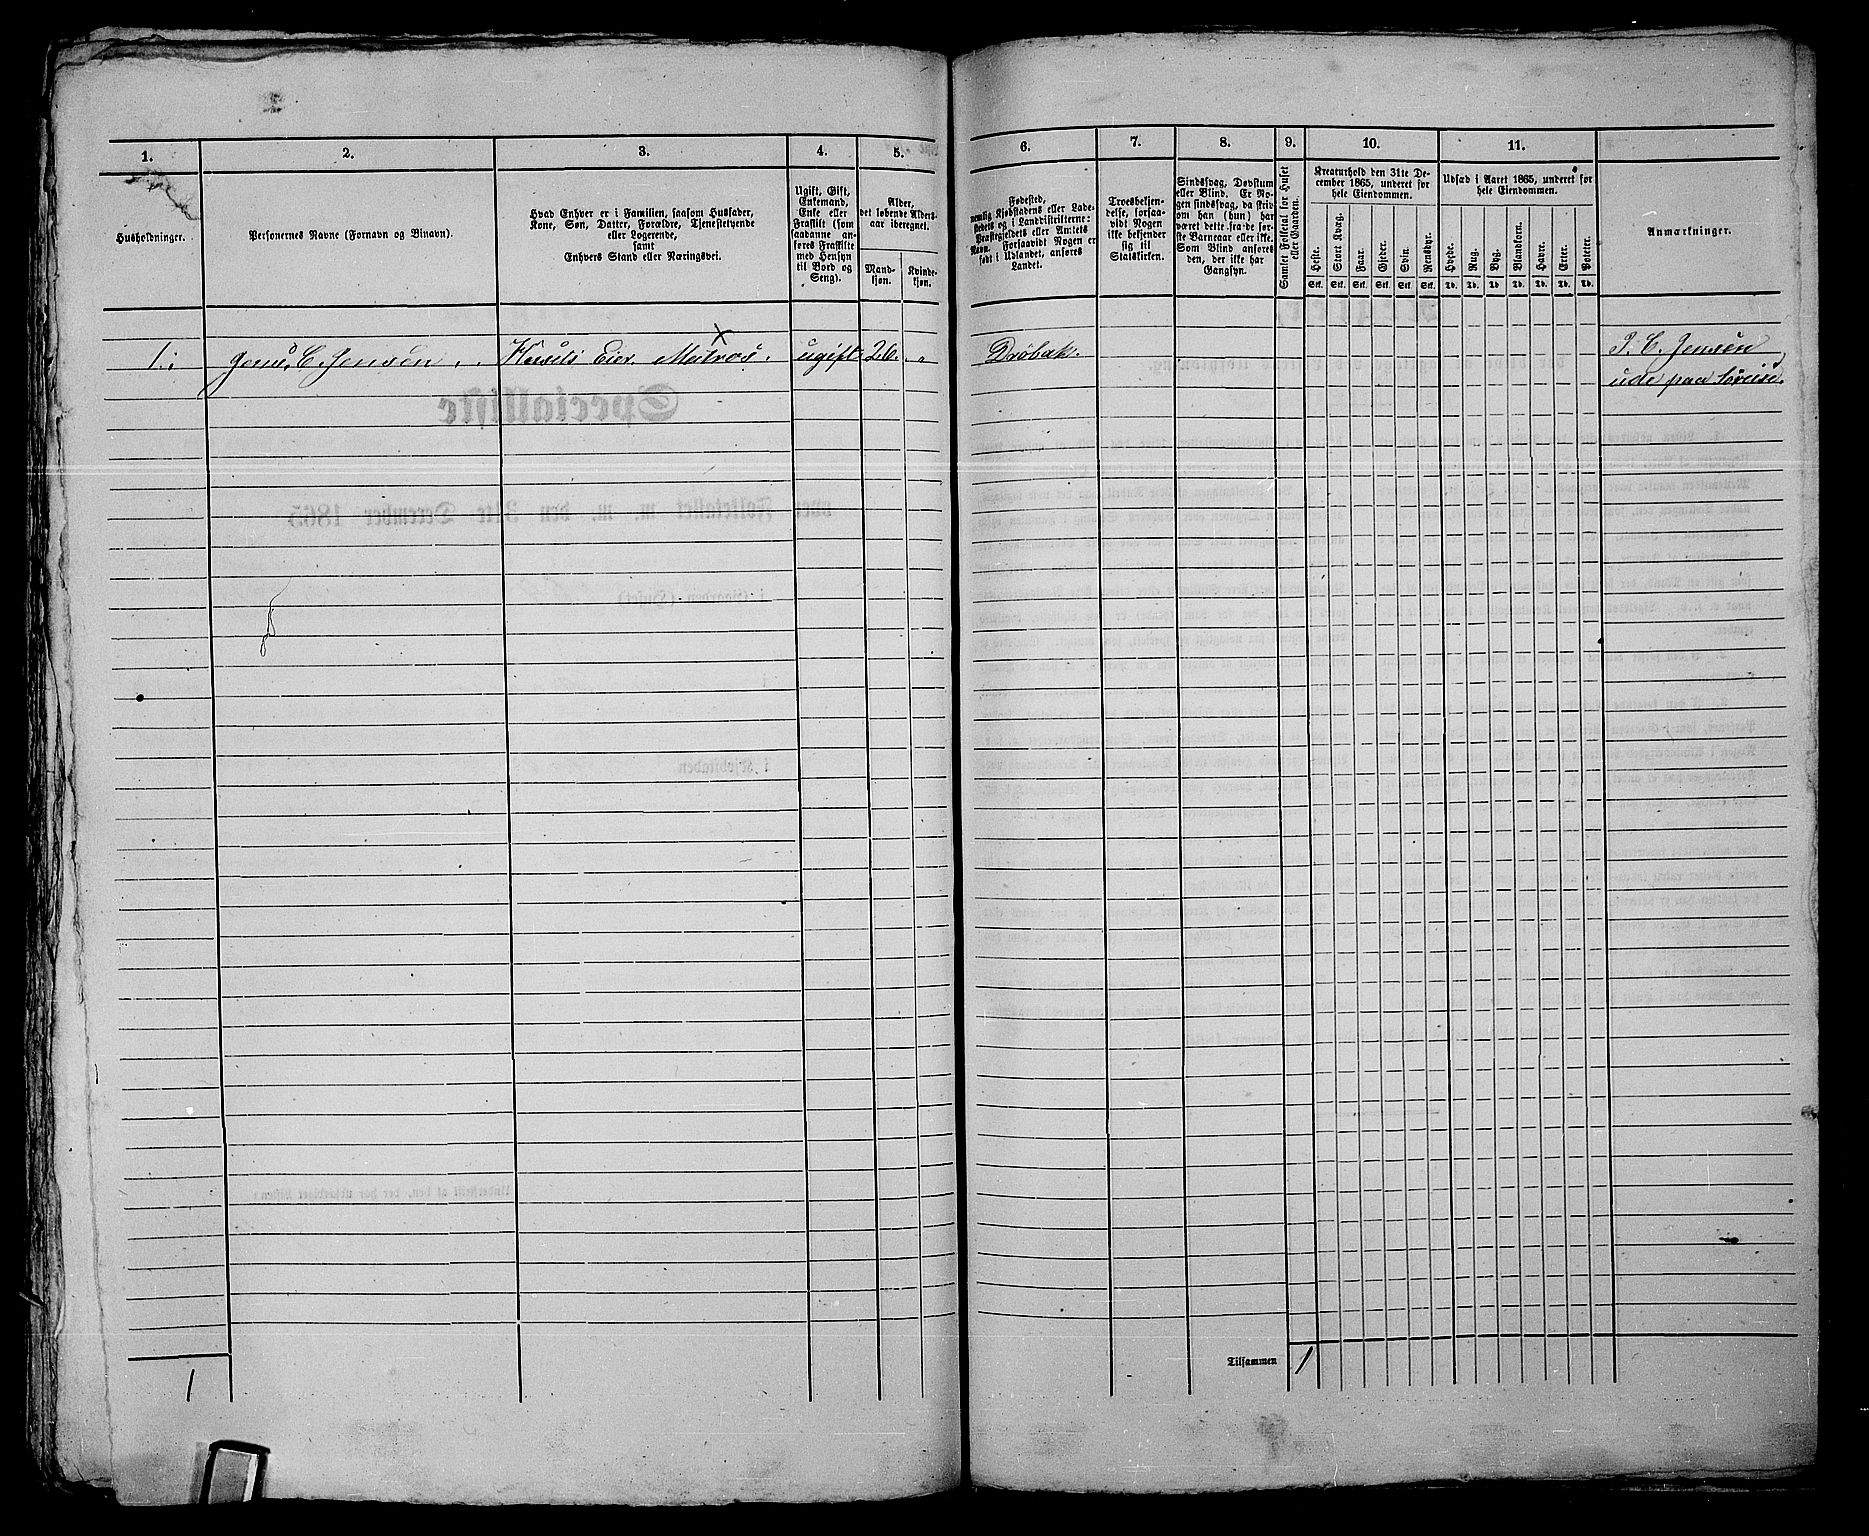 1.
2.
3.
4.
5.
Husholdninger.
Personernes Navne (Fornavn og Binavn).
Hvad Enhver er i Familien, saasom Husfader,
Kone, Søn, Datter, Forældre, Tjenestetyende
eller Logerende,
samt
Enhvers Stand eller Næringsvei.
Ugift, Gift,
Enkemand,
Enke eller
Fraskilt (som
saadanne an-
føres Fraskilte
med Hensyn
til Bord og
Seng).
Alder,
det løbende Alders-
aar iberegnet.
Mand-
kjøn.
Kvinde-
kjøn.
1.
Jens. C. Jensen
Huusets Eier. Matros.
ugift
26.
"
1
6.
7.
8.
9.
10.
11.
Fødested,
nemlig Kjøbstadens eller Lade-
stedets og i Landdistrikterne:
Præstegjeldets eller Amtets
Navn. Forsaavidt Nogen er
født i Udlandet, anføres
Landet.
Troesbekjen-
delse, forsaa-
vidt Nogen
ikke bekjender
sig til
Statskirken.
Sindssvag, Døvstum
eller Blind. Er No-
gen sindssvag, da skriv
om han (hun) har
været dette fra de før-
ste Barneaar eller ikke.
Som Blind anføres
den, der ikke har
Gangsyn.
Samlet Folketal for Huset
eller Gaarden.
Kreaturhold den 31te De-
cember 1865, underet for
hele Eiendommen.
Heste.
Stort Kvæg.
Faar.
Gjeder.
Svin.
Rensdyr.
Stk. Stk. Stk. Stk. Stk. Stk.
Udsæd i Aaret 1865, underet for
hele Eiendommen.
Hvede.
Rug.
Byg.
Blandkorn.
Havre.
Erter.
Poteter.
Td. Td. Td. Td. Td. Td. Td.
Anmærkninger.
Drøbak.
J. C. Jensen
ude paa Søreise.
Tilsammen 1